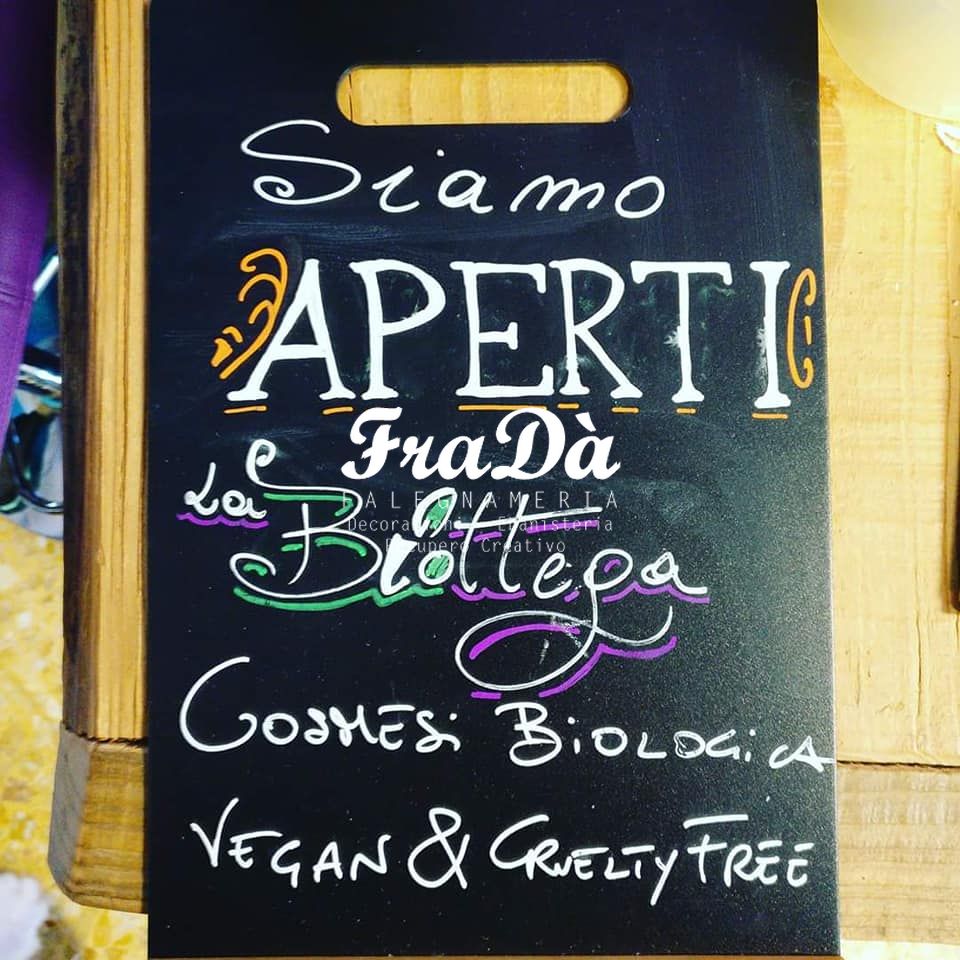 Siamo
APERTI
FraDà
FALEGNAMERIA
Decorazioni Ebanisteria
Recupero Creativo
La Biottega
COSMESi BiOLOGiCA
VEGAN & CRUELTY FREE